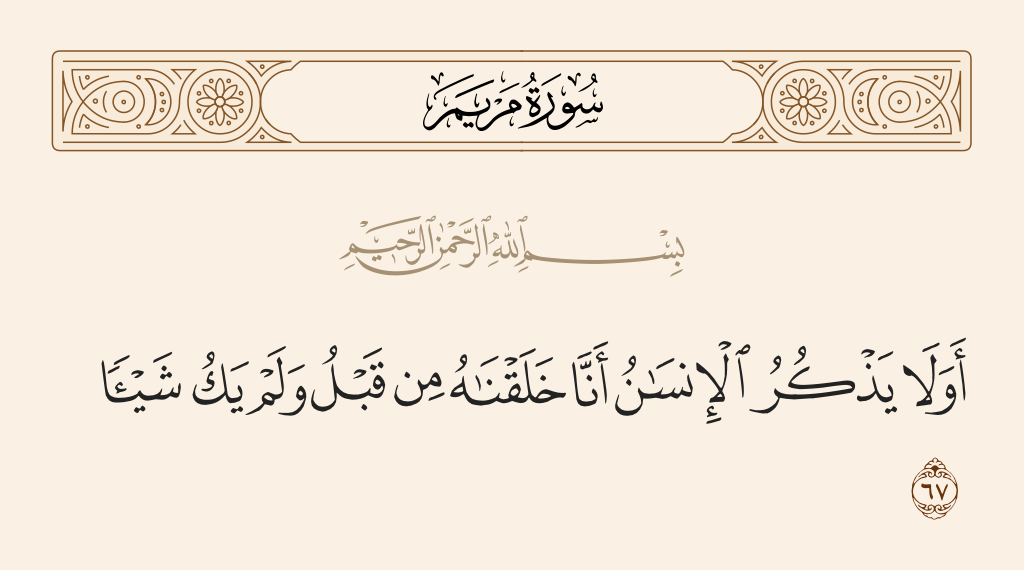 سُورَةُ مَرْيَمَ
بِسْمِ ٱللَّهِ ٱلرَّحْمَٰنِ ٱلرَّحِيمِ
أَوَلَا يَذْكُرُ ٱلْإِنسَٰنُ أَنَّا خَلَقْنَٰهُ مِن قَبْلُ وَلَمْ يَكُ شَيْـًٔا
٦٧